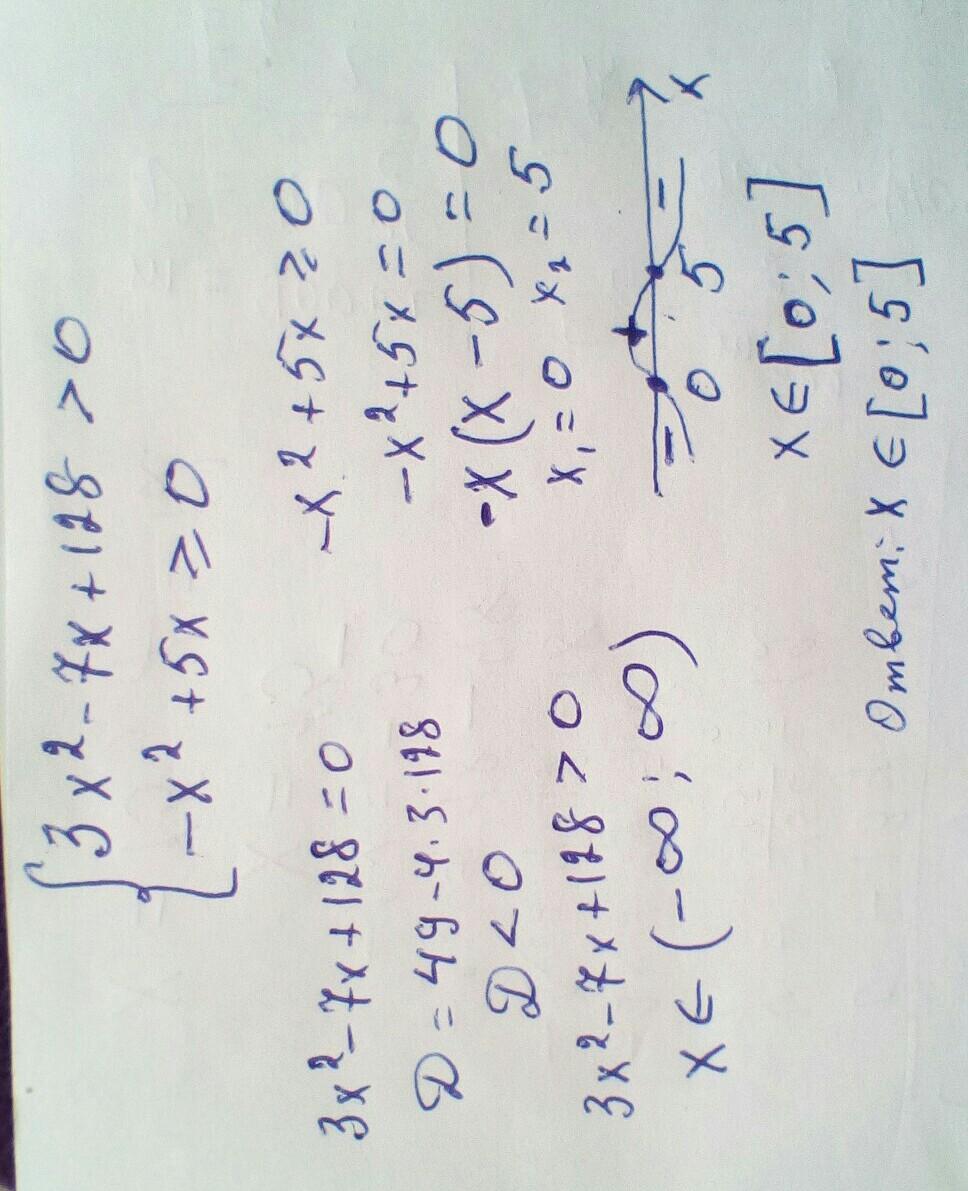 {3x² - 7x + 128 > 0
-x² + 5x ≥ 0
3x² - 7x + 128 = 0
D = 49 - 4·3·128
D < 0
3x² - 7x + 128 > 0
x ∈ (-∞; ∞)
-x² + 5x ≥ 0
-x² + 5x = 0
-x(x - 5) = 0
x₁ = 0 x₂ = 5
- + -
0 5 x
x ∈ [0; 5]
Ответ: x ∈ [0; 5]